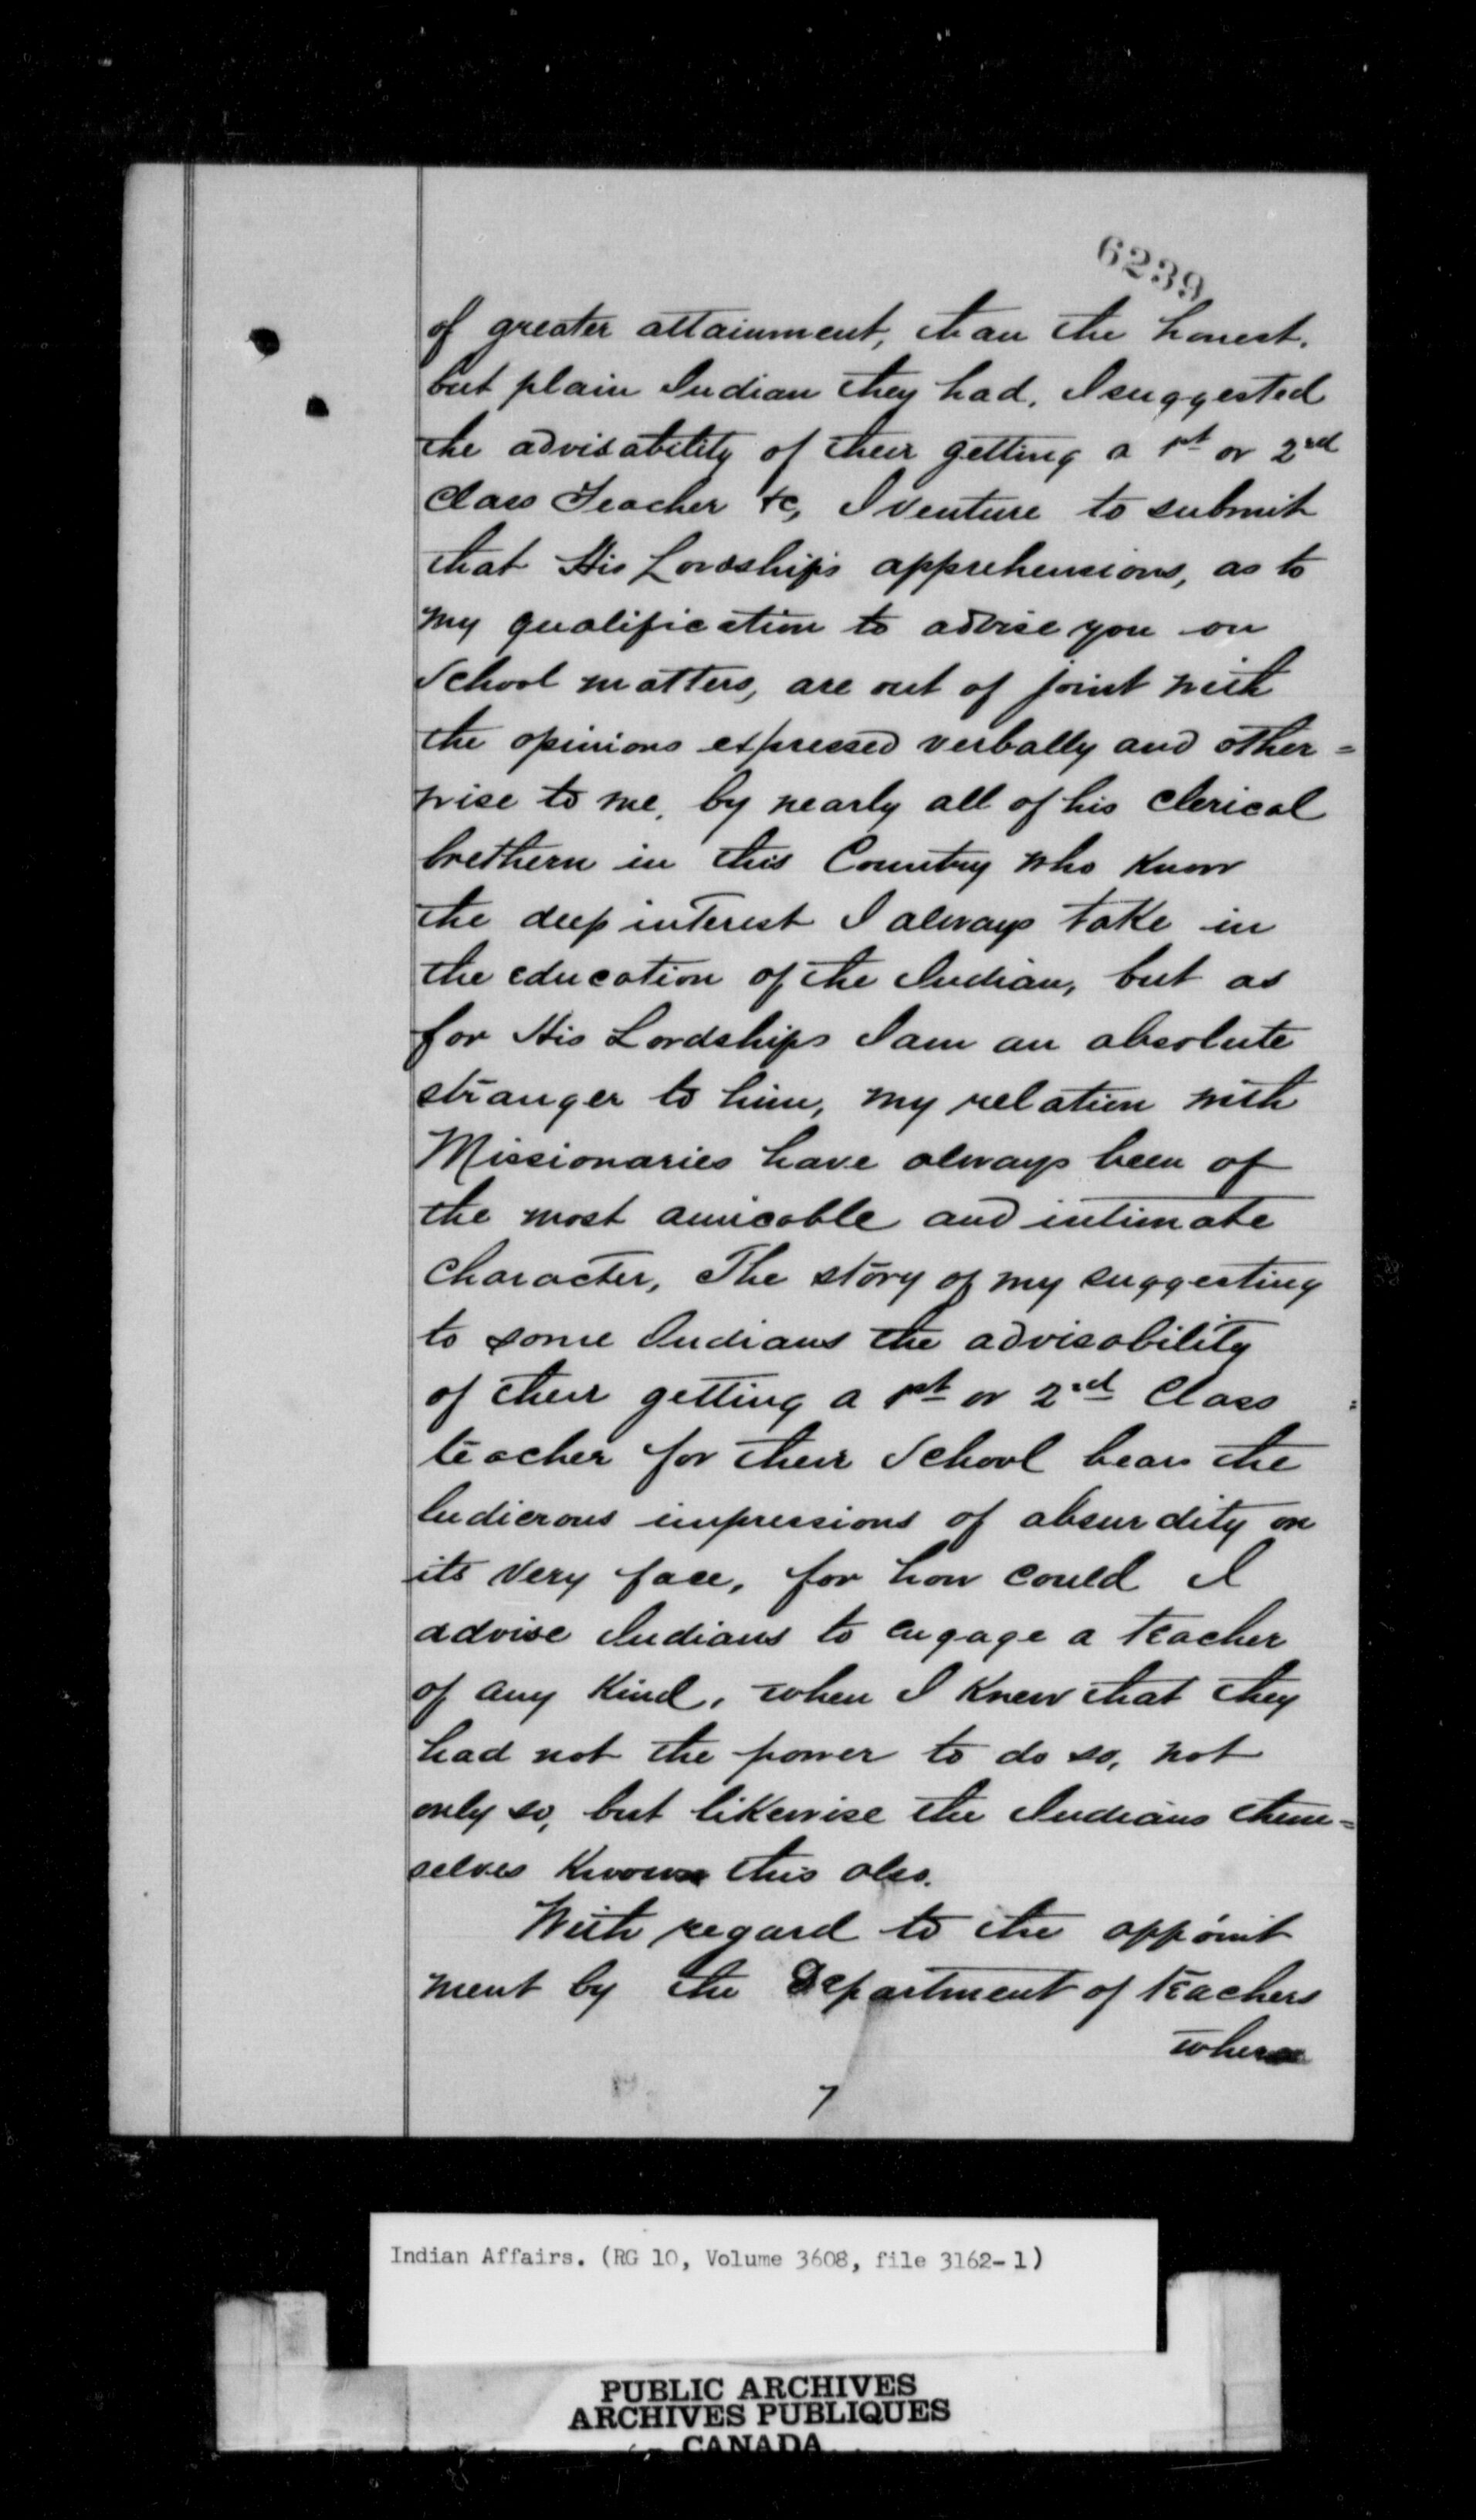 6239
of greater attainment, than the honest.
but plain Indian they had. I suggested
the advisability of their getting a 1st or 2nd
Class Teacher &c, I venture to submit
that His Lordship's apprehensions, as to
my qualification to advise you on
School matters, are out of joint with
the opinions expressed verbally and other =
wise to me, by nearly all of his clerical
brethern in this Country who know
the deep interest I always take in
the education of the Indian, but as
for His Lordships I am an absolute
stranger to him, my relation with
Missionaries have always been of
the most amicable and intimate
character, The story of my suggesting
to some Indians the advisability
of their getting a 1st or 2nd Class
teacher for their School bears the
ludicrous impressions of absurdity on
its very face, for how could I
advise Indians to engage a teacher
of any kind, when I knew that they
had not the power to do so, not
only so, but likewise the Indians them =
selves known this also.
With regard to the appoint
ment by the Department of teachers
where
7
Indian Affairs. (RG 10, Volume 3608, file 3162-1)
PUBLIC ARCHIVES
ARCHIVES PUBLIQUES
CANADA